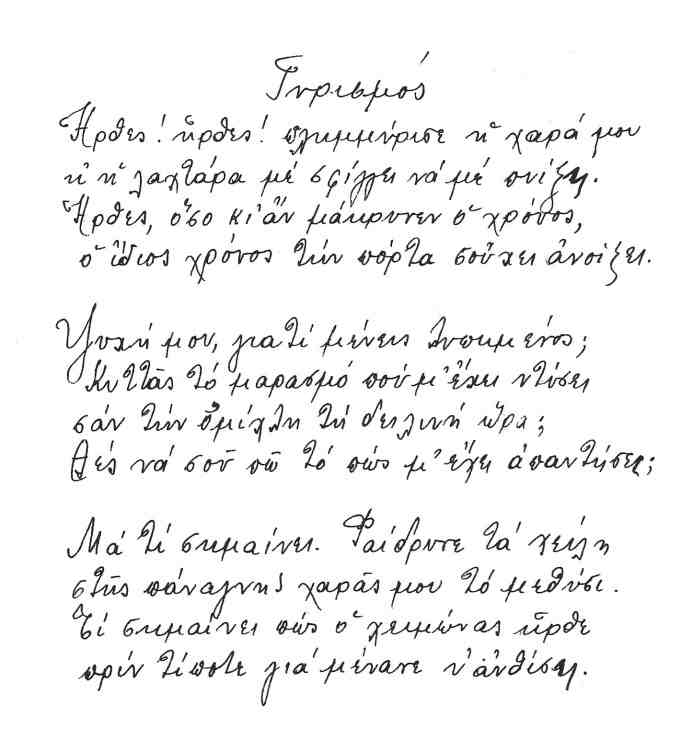 Γυρισμός
Ἦρθες! ἦρθες! πλημμύρισε ἡ χαρά μου
κι ἡ λαχτάρα μέ σφίγγει νά μέ πνίξῃ.
Ἦρθες, ὅσο κι' ἄν μάκρυνεν ὁ χρόνος,
ὁ ἴδιος χρόνος τήν πόρτα σοὔχει ἀνοίξει.
Ψυχή μου, γιατί μένεις
Κυττᾶς τό μαρασμό πού μ' ἔχει ντύσει
σάν τήν ὁμίχλη τή δειλινή ὥρα;
Θές νά σοῦ πῶ τό πώς μ' ἔχει ἀπαντήσει;
Μά τί σημαίνει. Φαίδρυνε τά χείλη
στῆς πάναγνης χαρᾶς μου τό μεθύσι.
Τί σημαίνει πώς ὁ χειμώνας ἦρθε
πρίν τίποτε γιά μένανε ν' ἀνθίσῃ.